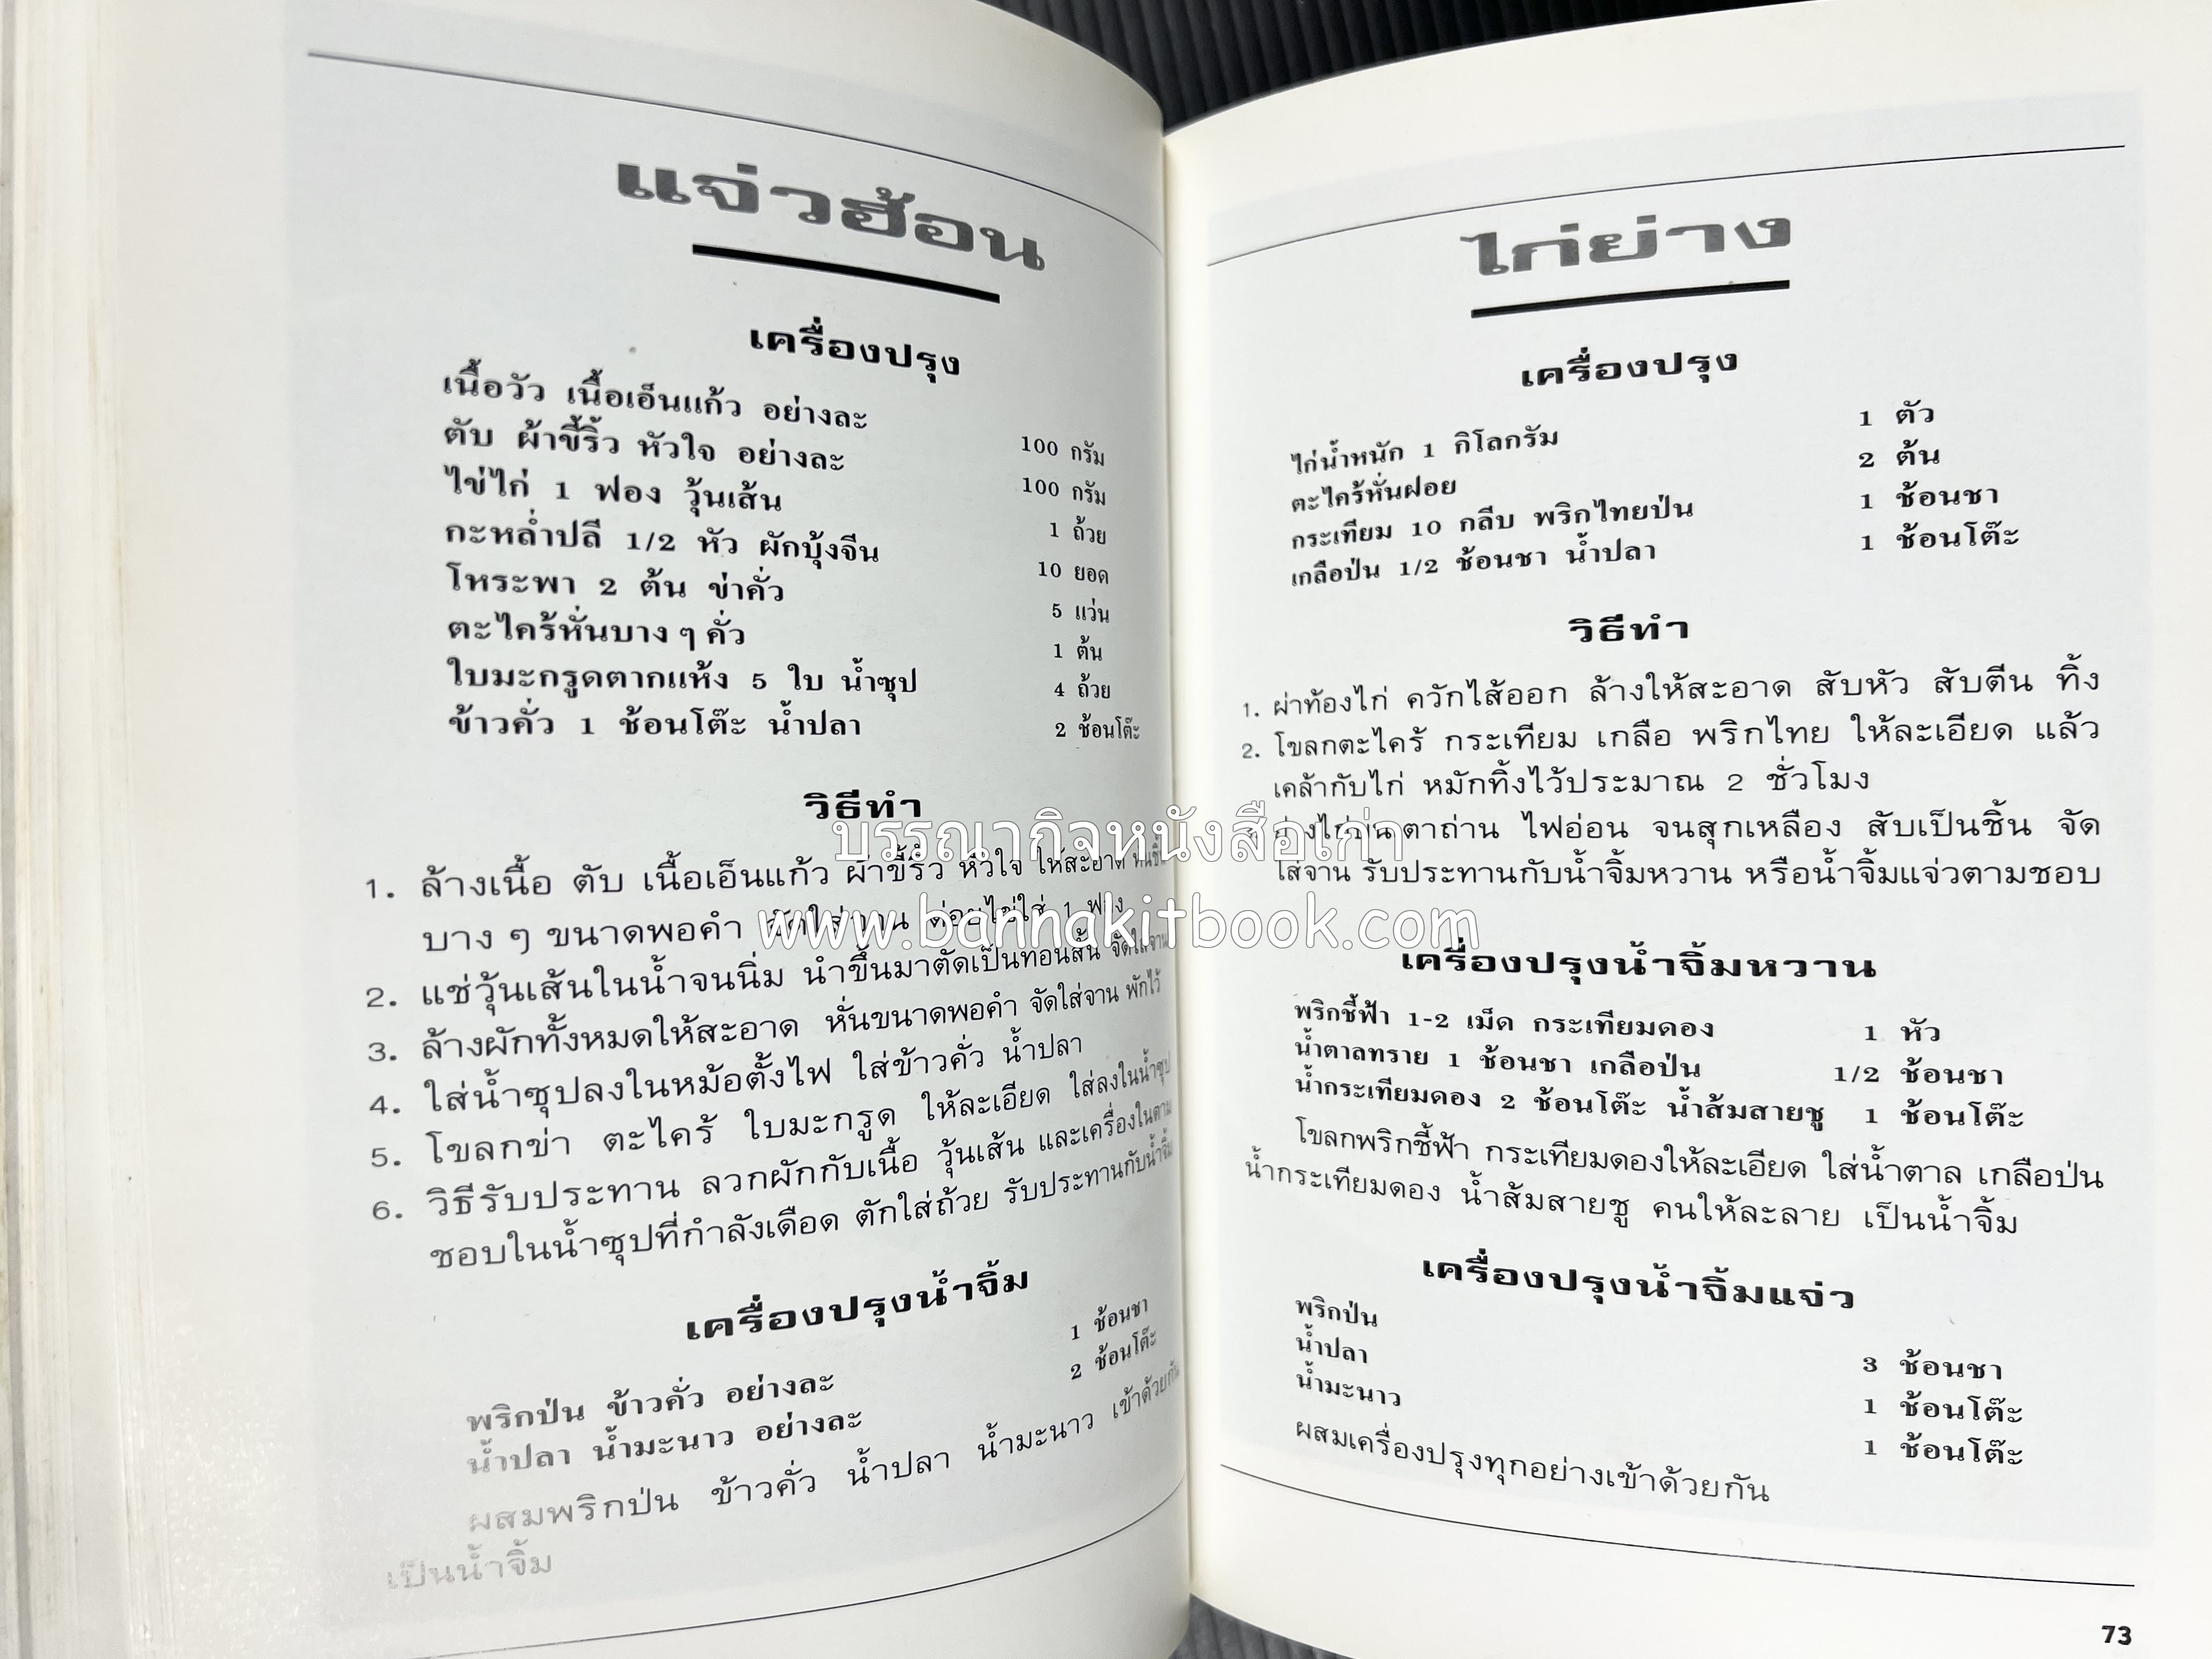 แจ่วฮ้อน
เครื่องปรุง
เนื้อวัว เนื้อเอ็นแก้ว อย่างละ 100 กรัม
ตับ ผ้าขี้ริ้ว หัวใจ อย่างละ 100 กรัม
ไข่ไก่ 1 ฟอง วุ้นเส้น 1 ถ้วย
กะหล่ำปลี 1/2 หัว ผักบุ้งจีน 10 ยอด
โหระพา 2 ต้น ข่าคั่ว 5 แว่น
ตะไคร้หั่นบาง ๆ คั่ว 1 ต้น
ใบมะกรูดตากแห้ง 5 ใบ น้ำซุป 4 ถ้วย
ข้าวคั่ว 1 ช้อนโต๊ะ น้ำปลา 2 ช้อนโต๊ะ
วิธีทำ
1. ล้างเนื้อ ตับ เนื้อเอ็นแก้ว ผ้าขี้ริ้ว หัวใจ ให้สะอาด หั่นชิ้น
บาง ๆ ขนาดพอคำ จัดใส่จาน ต่อยไข่ใส่ 1 ฟอง
2. แช่วุ้นเส้นในน้ำจนนิ่ม นำขึ้นมาตัดเป็นทอนสั้น จัดใส่จาน
3. ล้างผักทั้งหมดให้สะอาด หั่นขนาดพอคำ จัดใส่จาน พักไว้
4. ใส่น้ำซุปลงในหม้อตั้งไฟ ใส่ข้าวคั่ว น้ำปลา
5. โขลกข่า ตะไคร้ ใบมะกรูด ให้ละเอียด ใส่ลงในน้ำซุป
6. วิธีรับประทาน ลวกผักกับเนื้อ วุ้นเส้น และเครื่องในตาม
ชอบในน้ำซุปที่กำลังเดือด ตักใส่ถ้วย รับประทานกับน้ำจิ้ม
เครื่องปรุงน้ำจิ้ม
พริกป่น ข้าวคั่ว อย่างละ 1 ช้อนชา
น้ำปลา น้ำมะนาว อย่างละ 2 ช้อนโต๊ะ
ผสมพริกป่น ข้าวคั่ว น้ำปลา น้ำมะนาว เข้าด้วยกัน
เป็นน้ำจิ้ม
ไก่ย่าง
เครื่องปรุง
ไก่น้ำหนัก 1 กิโลกรัม 1 ตัว
ตะไคร้หั่นฝอย 2 ต้น
กระเทียม 10 กลีบ พริกไทยป่น 1 ช้อนชา
เกลือป่น 1/2 ช้อนชา น้ำปลา 1 ช้อนโต๊ะ
วิธีทำ
1. ผ่าท้องไก่ ควักไส้ออก ล้างให้สะอาด สับหัว สับตีน ทิ้ง
2. โขลกตะไคร้ กระเทียม เกลือ พริกไทย ให้ละเอียด แล้ว
เคล้ากับไก่ หมักทิ้งไว้ประมาณ 2 ชั่วโมง
ย่างไก่บนเตาถ่าน ไฟอ่อน จนสุกเหลือง สับเป็นชิ้น จัด
ใส่จาน รับประทานกับน้ำจิ้มหวาน หรือน้ำจิ้มแจ่วตามชอบ
เครื่องปรุงน้ำจิ้มหวาน
พริกชี้ฟ้า 1-2 เม็ด กระเทียมดอง 1 หัว
น้ำตาลทราย 1 ช้อนชา เกลือป่น 1/2 ช้อนชา
น้ำกระเทียมดอง 2 ช้อนโต๊ะ น้ำส้มสายชู 1 ช้อนโต๊ะ
โขลกพริกชี้ฟ้า กระเทียมดองให้ละเอียด ใส่น้ำตาล เกลือป่น
น้ำกระเทียมดอง น้ำส้มสายชู คนให้ละลาย เป็นน้ำจิ้ม
เครื่องปรุงน้ำจิ้มแจ่ว
พริกป่น 3 ช้อนชา
น้ำปลา 1 ช้อนโต๊ะ
น้ำมะนาว 1 ช้อนโต๊ะ
ผสมเครื่องปรุงทุกอย่างเข้าด้วยกัน
73
บรรณากิจหนังสือเก่า
www.bannakitbook.com